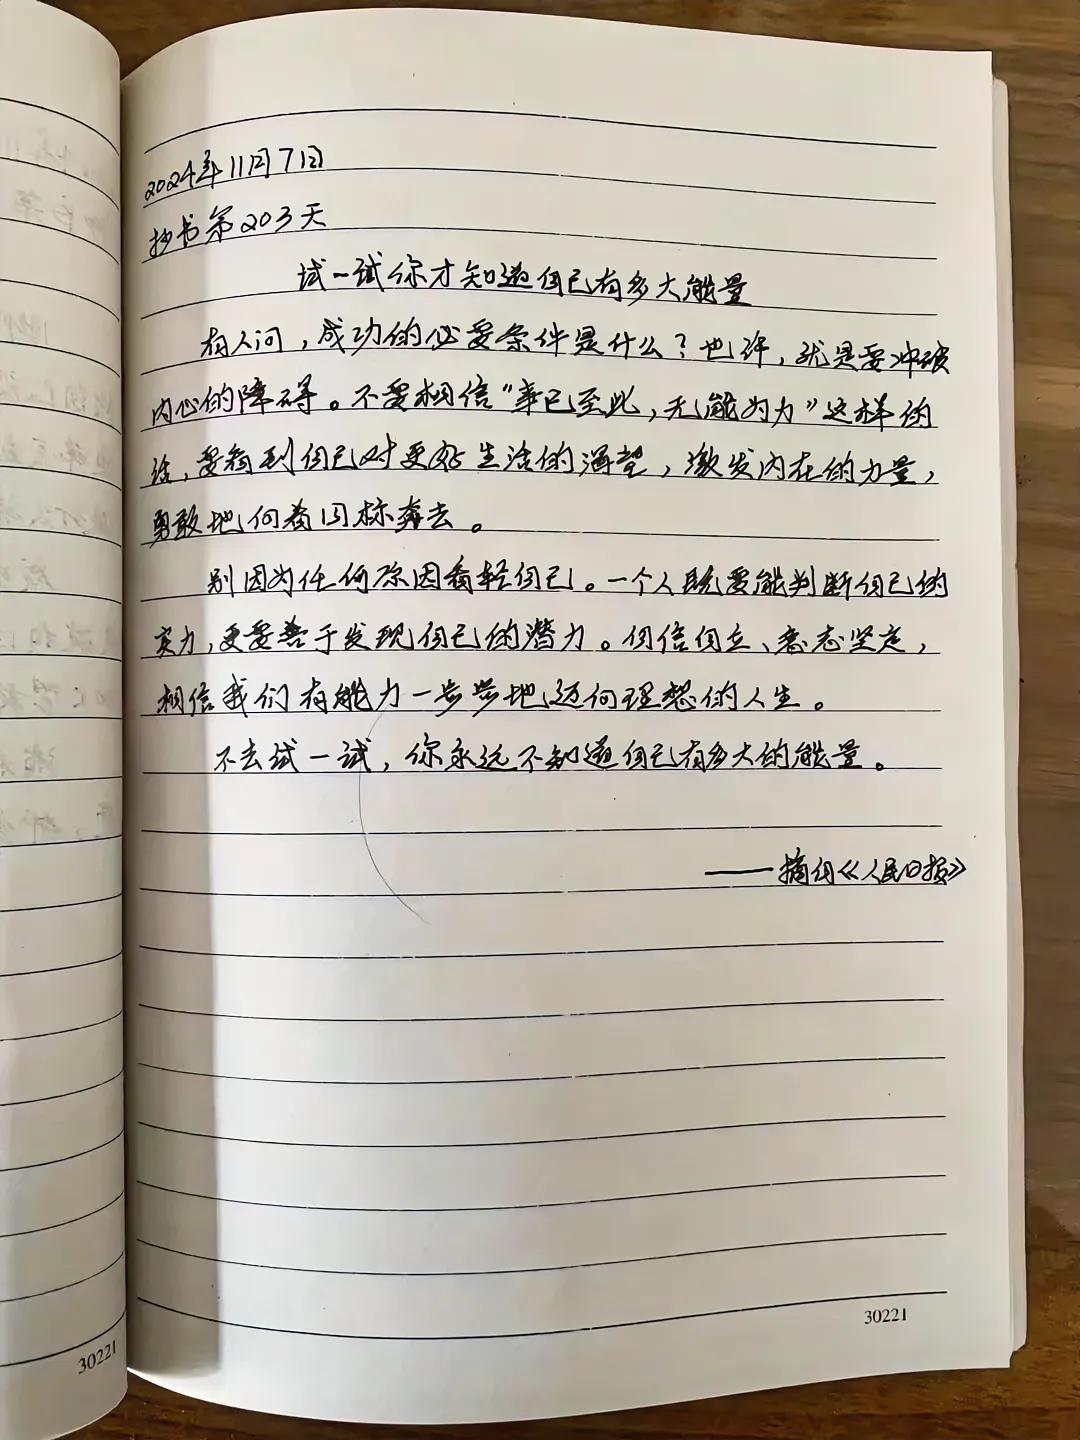 2024年11月7日
抄书第203天
试一试你才知道自己有多大能量
有人问,成功的必要条件是什么?也许,就是要冲破
内心的障碍。不要相信“事已至此,无能为力”这样的
话,要看到自己对更好生活的渴望,激发内在的力量,
勇敢地向着目标奔去。
别因为任何原因看轻自己。一个人既要能判断自己的
实力,更要善于发现自己的潜力。自信自立、意志坚定,
相信我们有能力一步步地迈向理想的人生。
不去试一试,你永远不知道自己有多大的能量。
——摘自《人民日报》
30221
30221